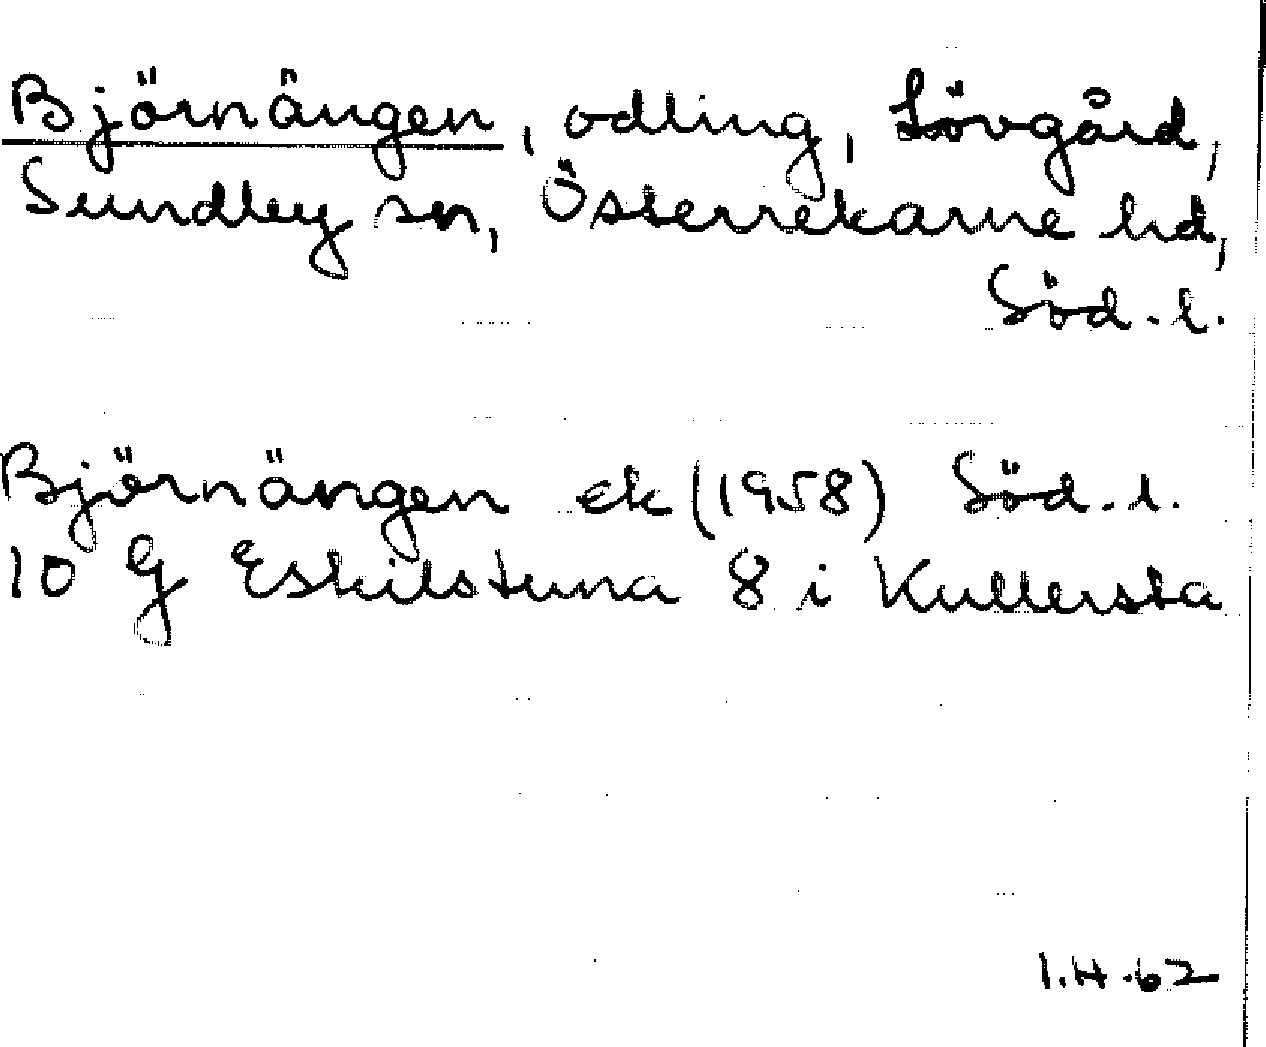 Björnängen, odling, Lövgård,
Sundby sn, Österrekarne hd,
Söd. l.
Björnängen ek (1958) Söd. l.
10 G Eskilstuna 8 i Kullersta
I.H. 62